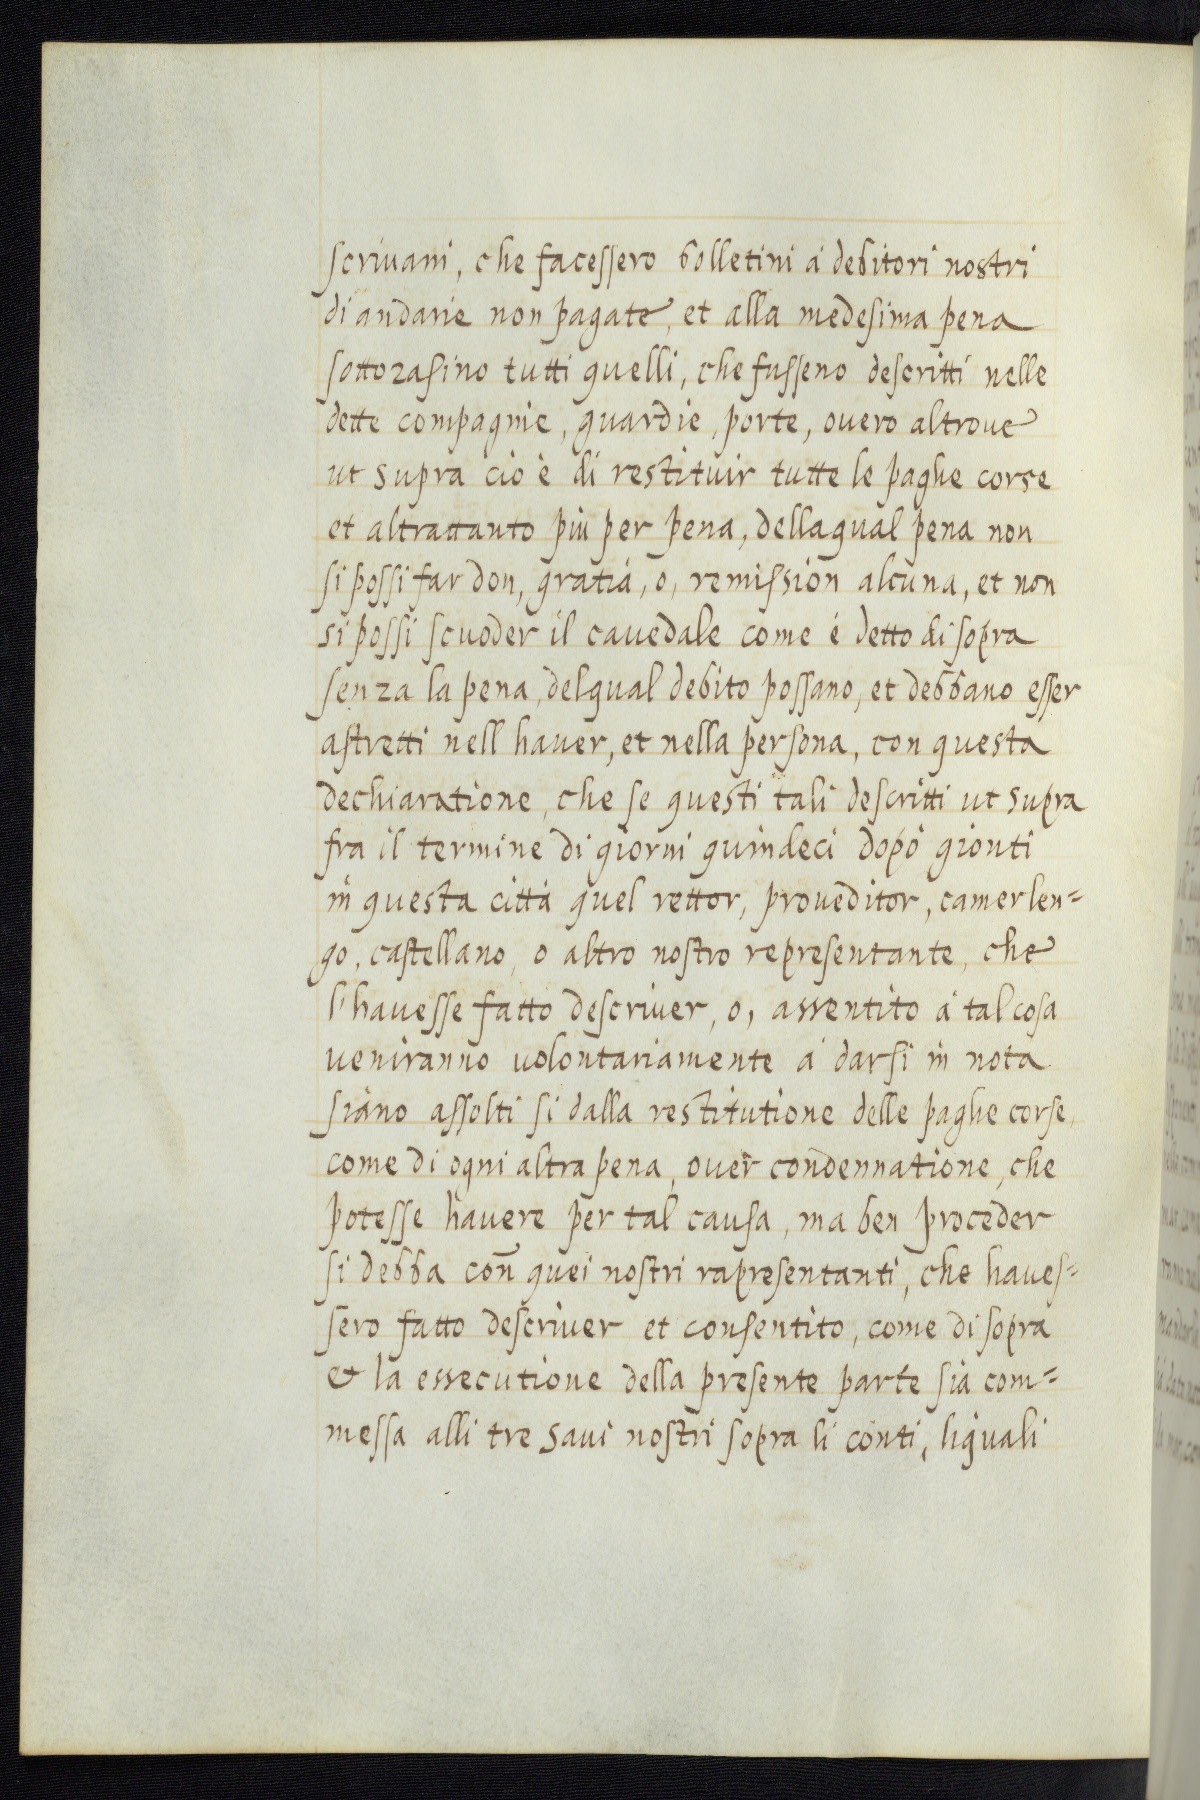 scrivani, che facessero bolletini à debitori nostri
di andarie non pagate, et alla medesima pena
sottozasino tutti quelli, che fusseno descritti nelle
dette compagnie, guardie, porte, overo altroue
ut supra cio è di restituir tutte le paghe corse
et altrattanto più per pena, dellaqual pena non
si possi far don, gratia, o, remission alcuna, et non
si possi scuoder il cauedale come é detto di sopra
senza la pena, delqual debito possano, et debbano esser
astretti nell hauer, et nella persona, con questa
dechiaratione, che se questi tali descritti ut supra
fra il termine di giorni quindeci dopó gionti
in questa cittá quel rettor, proueditor, camerlen=
go, castellano, o altro nostro representante, che
l'hauesse fatto descriuer, o, assentito á tal cosa
veniranno volontariamente á darsi in nota
siano assolti si dalla restitutione delle paghe corse,
come di ogni altra pena, ouer condennatione, che
potesse hauere per tal causa, ma ben proceder
si debba con quei nostri rapresentanti, che haues=
sero fatto descriuer et consentito, come di sopra
et la essecutione della presente parte sia com=
messa alli tre Saui nostri sopra li conti, liquali